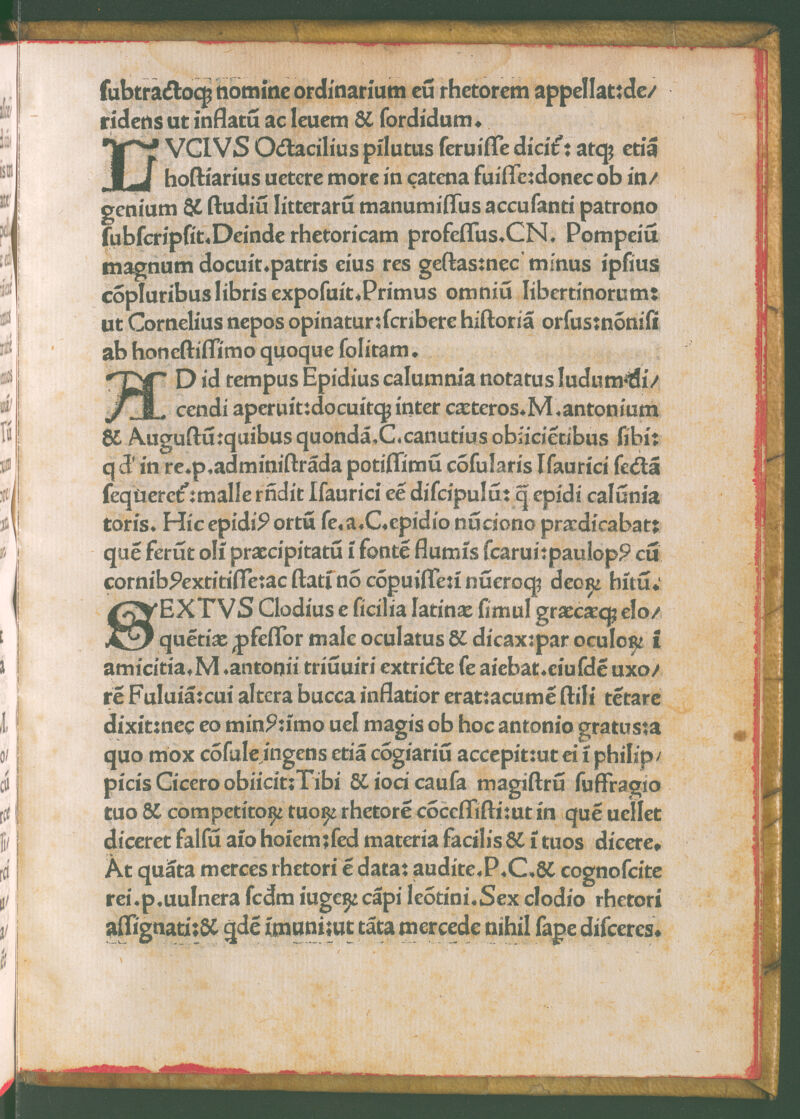 ſubtractoqꝫ nomine ordinarium eū rhetorem appellat:de/
ridens ut inflatū ac leuem & ſordidum.
LVCIVS Octacilius pilutus ſeruiſſe dicit᷑: atqꝫ etiā
hoſtiarius uetere more in catena fuiſſe:donec ob in/
genium & ſtudiū litterarū manumiſſus accuſanti patrono
ſubſcripſit.Deinde rhetoricam profeſſus.CN. Pompeiū
magnum docuit.patris eius res geſtas:nec minus ipſius
cōpluribus libris expoſuit.Primus omniū libertinorum:
ut Cornelius nepos opinatur:ſcribere hiſtoriā orſus:nōniſi
ab honeſtiſſimo quoque ſolitam.
AD id tempus Epidius calumnia notatus ludum di/
cendi aperuit:docuitqꝫ inter cæteros.M.antonium
& Auguſtū:quibus quondā.C.canutius obiiciētibus ſibi:
q d' in re.p.adminiſtrāda potiſſimū cōſularis Iſaurici ſectā
ſequeret᷑:malle rñdit Iſaurici eē diſcipulū: q̄ epidi calūnia
toris. Hic epidiꝰ ortū ſe.a.C.epidio nūciono prædicabat:
quē ferūt olī præcipitatū ī fontē flumīs ſcarui:paulopꝰ cū
cornibꝰextitiſſe:ac ſtatī nō cōpuiſſe:ī nūeroqꝫ deoꝝ hitū.
SEXTVS Clodius e ſicilia latinæ ſimul græcæqꝫ elo/
quētiæ ꝓfeſſor male oculatus & dicax:par oculoꝝ ī
amicitia.M.antonii triūuiri extricte ſe aiebat.eiuſdē uxo/
rē Fuluiā:cui altera bucca inflatior erat:acumē ſtili tētare
dixit:nec eo minꝰ:imo uel magis ob hoc antonio gratus:a
quo mox cōſule ingens etiā cōgiariū accepit:ut ei ī philip/
picis Cicero obiicit:Tibi & ioci cauſa magiſtrū ſuffragio
tuo & competitoꝝ tuoꝝ rhetorē cōceſſiſti:ut in quē uellet
diceret falſū aīo hoīem;ſed materia facilis & ī tuos dicere.
At quāta merces rhetori ē data: audite.P.C.& cognoſcite
rei.p.uulnera ſcd̄m iugeꝝ cāpi leōtini.Sex clodio rhetori
aſſignati:& qdē imuni:ut tāta mercede nihil ſape diſceres.